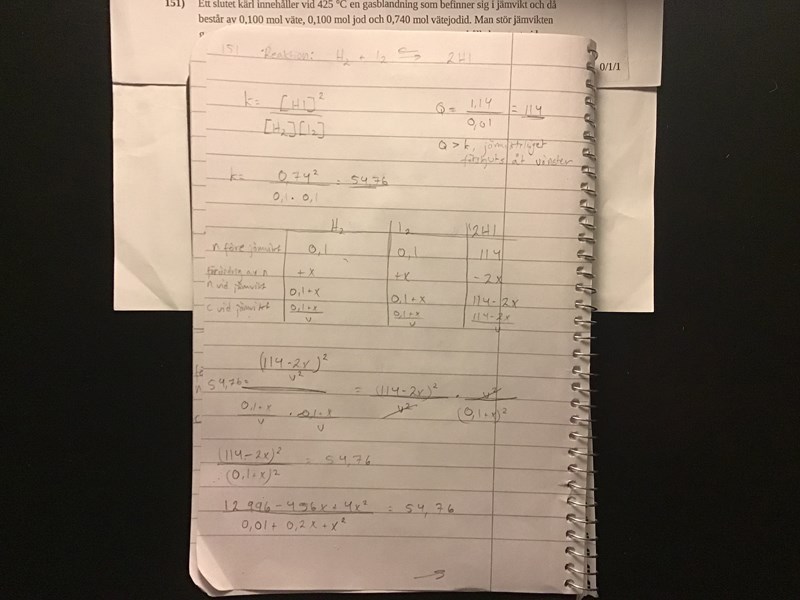 151) Ett slutet kärl innehåller vid 425 °C en gasblandning som befinner sig i jämvikt och då
består av 0,100 mol väte, 0,100 mol jod och 0,740 mol vätejodid. Man stör jämvikten
0/1/1
151 Reaktion: H₂ + I₂ ⇆ 2HI
k = [HI]² / [H₂][I₂]
Q = 1,14 / 0,01 = 114
Q > k, jämviktsläget
förskjuts åt vänster
k = 0,74² / 0,1 · 0,1 = 54,76
H₂ I₂ 2HI
n före jämvikt 0,1 0,1 114
förändring av n +x +x -2x
n vid jämvikt 0,1+x 0,1+x 114-2x
c vid jämvikt 0,1+x / v 0,1+x / v 114-2x / v
54,76 = (114-2x)² / v² / 0,1+x / v · 0,1+x / v = (114-2x)² / v² · v² / (0,1+x)²
(114-2x)² / (0,1+x)² = 54,76
12 996 - 456x + 4x² / 0,01 + 0,2x + x² = 54,76
→